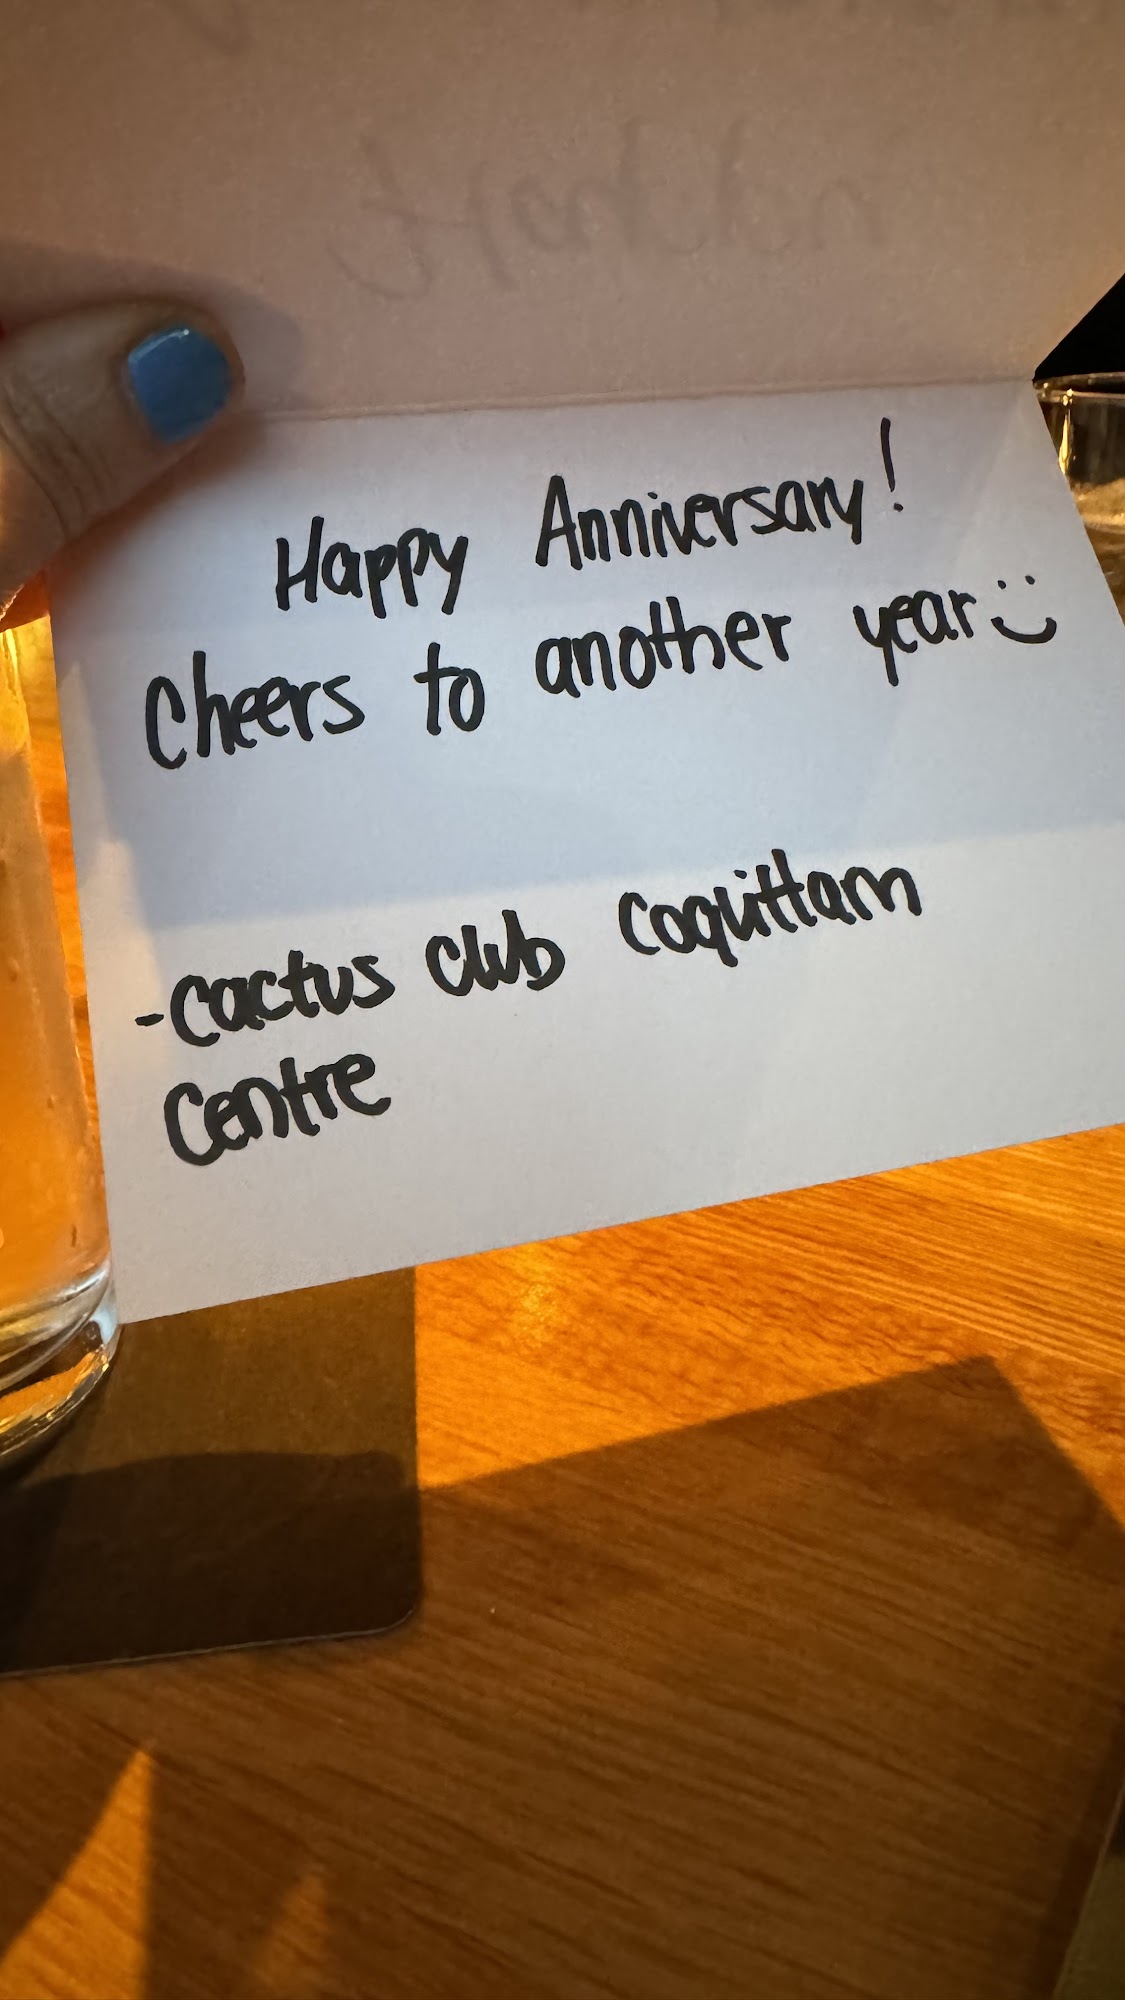 Happy Anniversary!
Cheers to another year
-Cactus Club Coquitlam
Centre